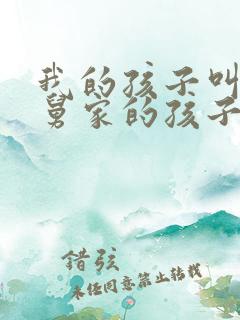 我的孩子叫
舅家的孩子
錯弦
未经同意禁止转载